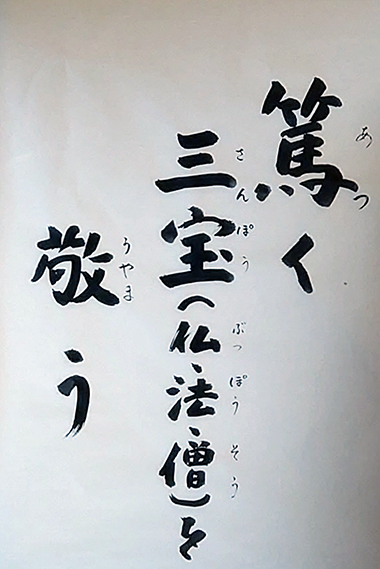 篤く
あつ
三宝(仏、法、僧)を
さんぽう ぶっ ぽう そう
敬う
うやま